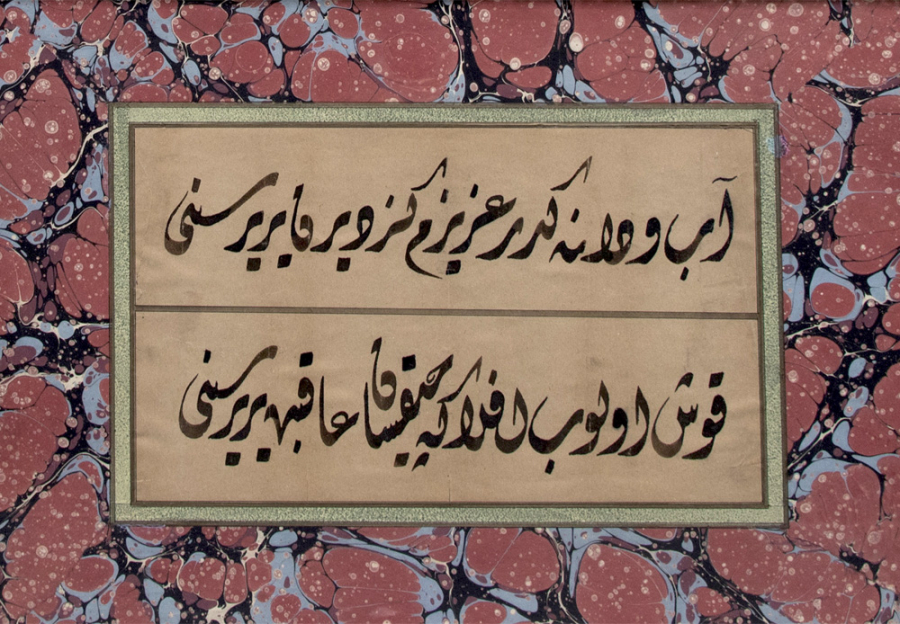 آب و دانه كدر عزیزم كزدیرن یر یر سنی
قوش اولوب افلاكه چیقسان عاقبت یر یر سنی